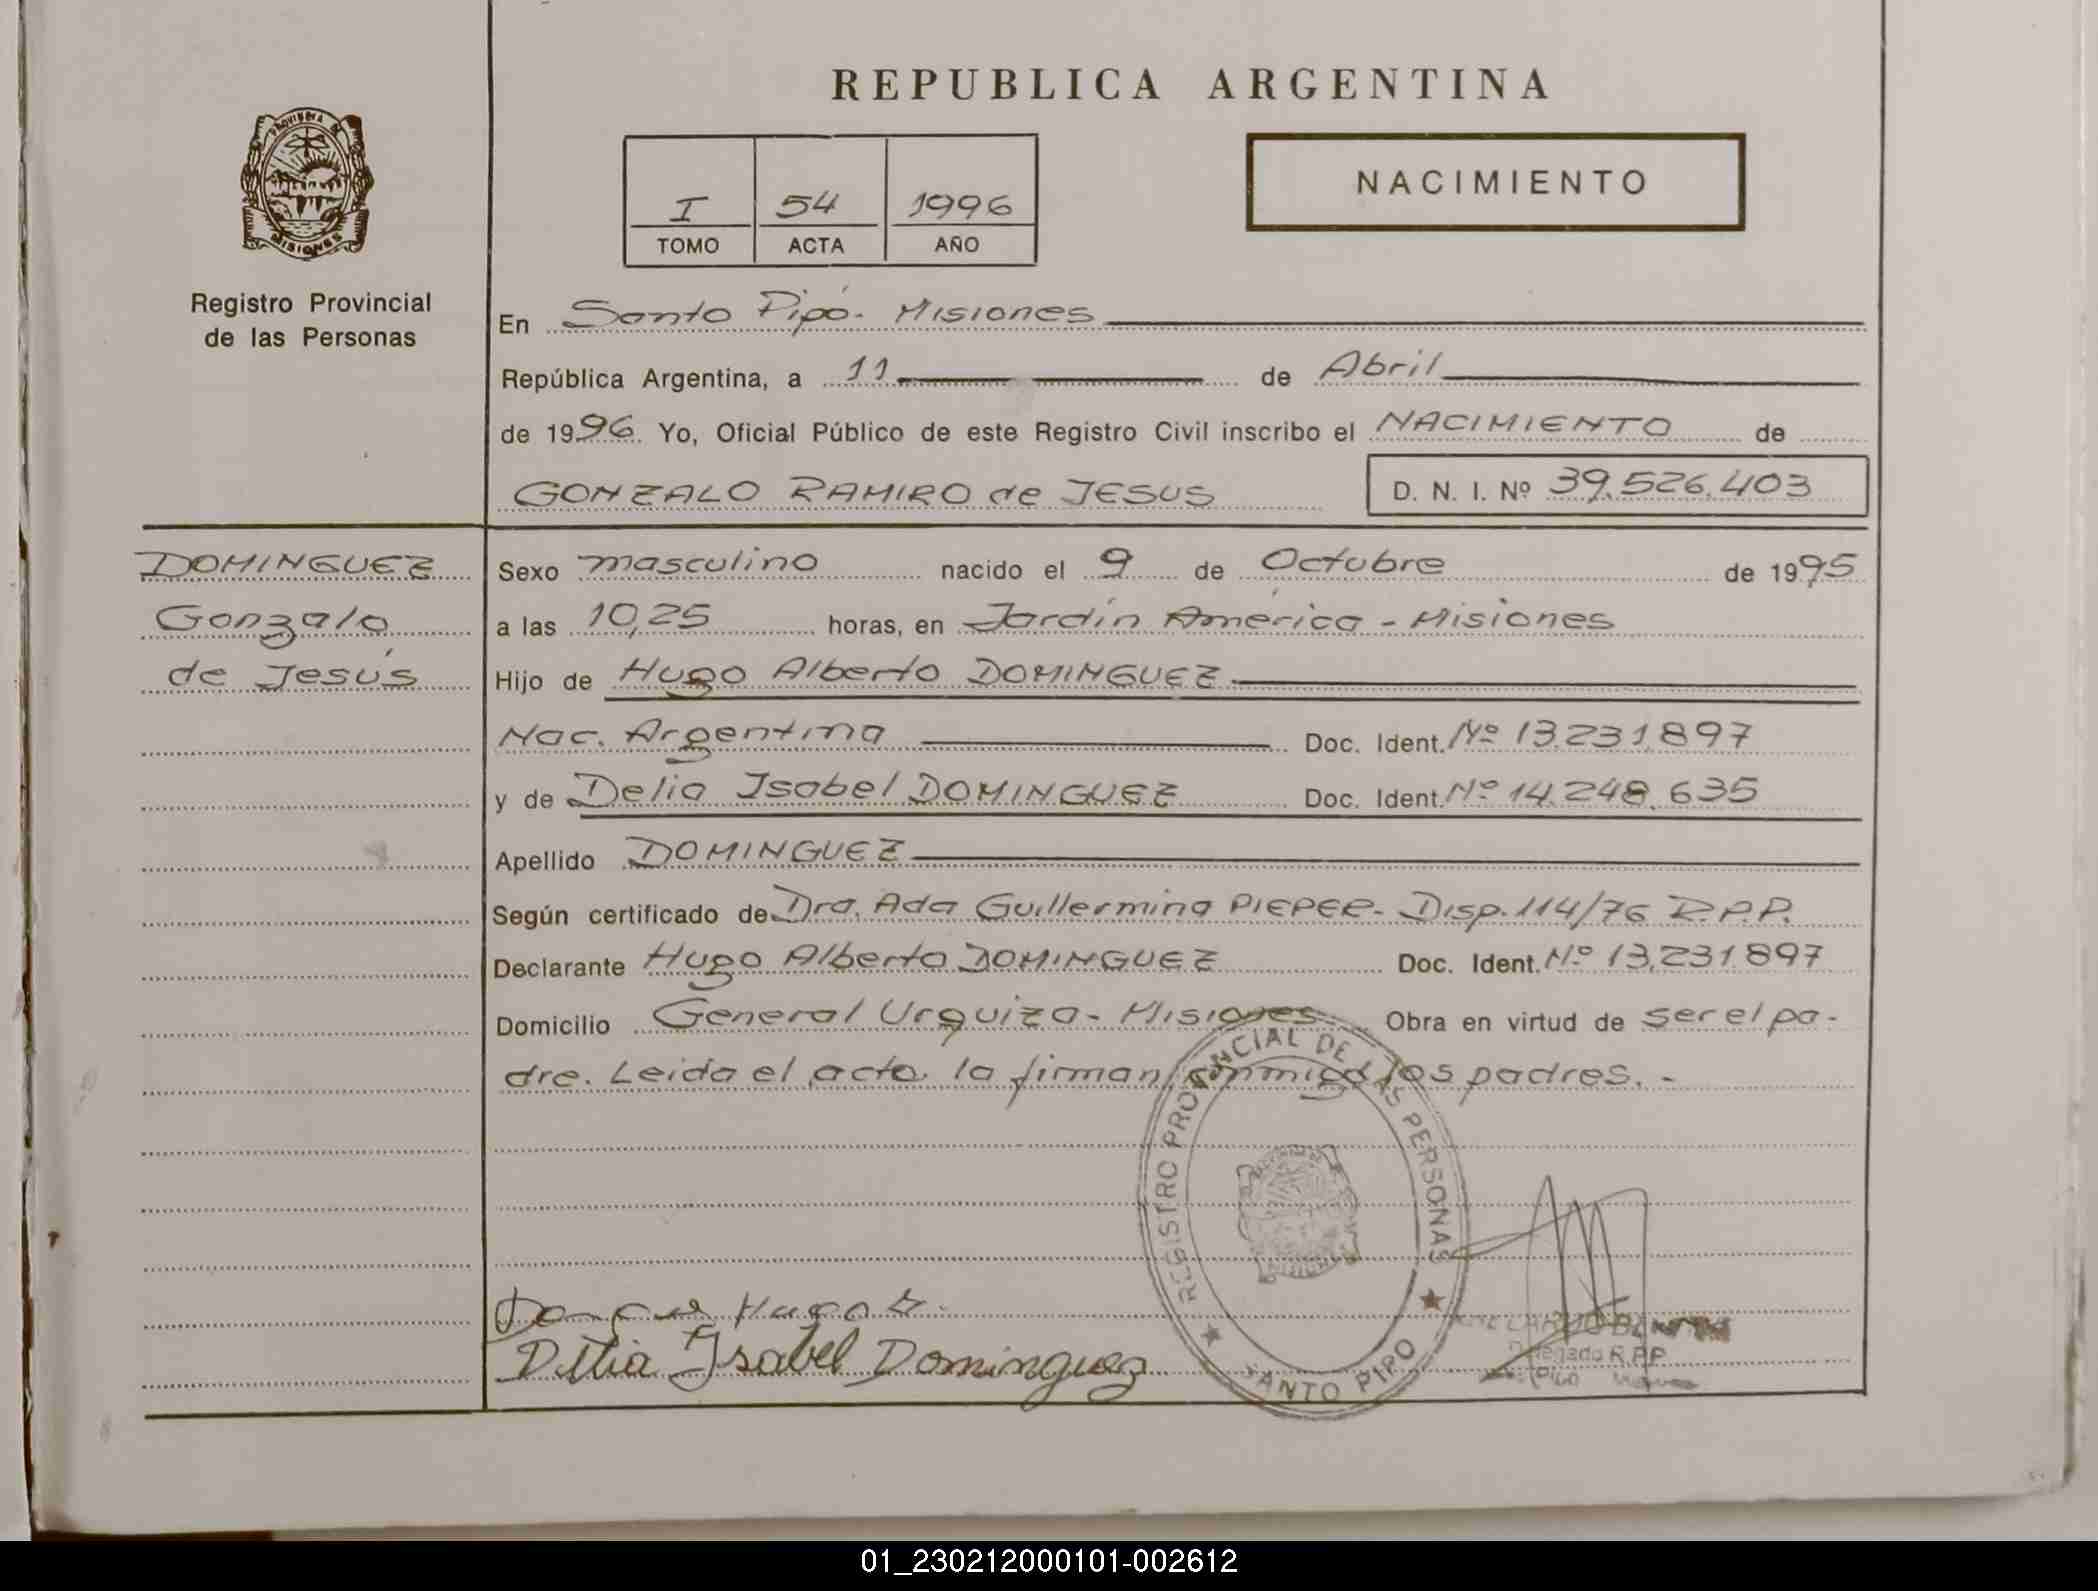 REPUBLICA ARGENTINA
PROVINCIA DE
MISIONES
Registro Provincial
de las Personas
I 54 1996
TOMO ACTA AÑO
NACIMIENTO
En Santo Pipó. Misiones
República Argentina, a 11 de Abril
de 1996 Yo, Oficial Público de este Registro Civil inscribo el NACIMIENTO de
GONZALO RAMIRO de JESUS D. N. I. Nº 39.526.403
DOMINGUEZ
Gonzalo
de Jesús
Sexo masculino nacido el 9 de Octubre de 1995
a las 10,25 horas, en Jardín América - Misiones
Hijo de Hugo Alberto DOMINGUEZ
Nac. Argentina Doc. Ident. Nº 13.231.897
y de Delia Isabel DOMINGUEZ Doc. Ident. Nº 14.248.635
Apellido DOMINGUEZ
Según certificado de Dra. Ada Guillermina PIEPER. Disp. 114/76 R.P.P.
Declarante Hugo Alberto DOMINGUEZ Doc. Ident. Nº 13.231.897
Domicilio General Urquiza - Misiones Obra en virtud de ser el pa-
dre. Leida el acta la firman conmigo los padres. -
REGISTRO PROVINCIAL DE LAS PERSONAS
SANTO PIPO
Hugo
Delia Isabel Dominguez
Delegado R.P.P.
01_230212000101-002612